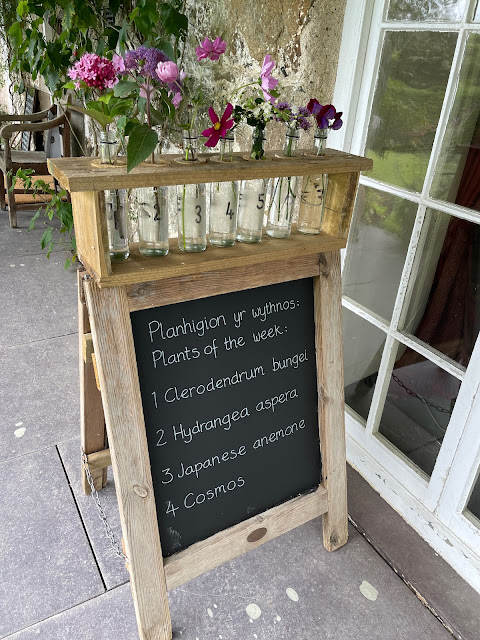 1 2 3 4 5
Planhigion yr wythnos:
Plants of the week:
1 Clerodendrum bungei
2 Hydrangea aspera
3 Japanese anemone
4 Cosmos